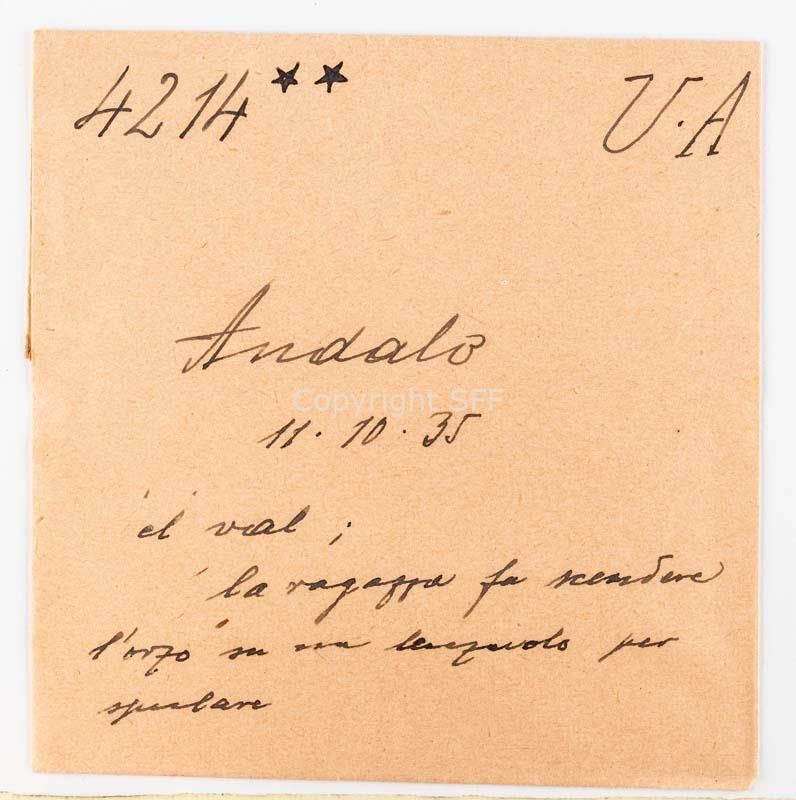 4214** U.A
Andalo
Copyright SFF
11.10.35
el val ;
la ragazza fa scendere
l'orzo su un lenzuolo per
spulare